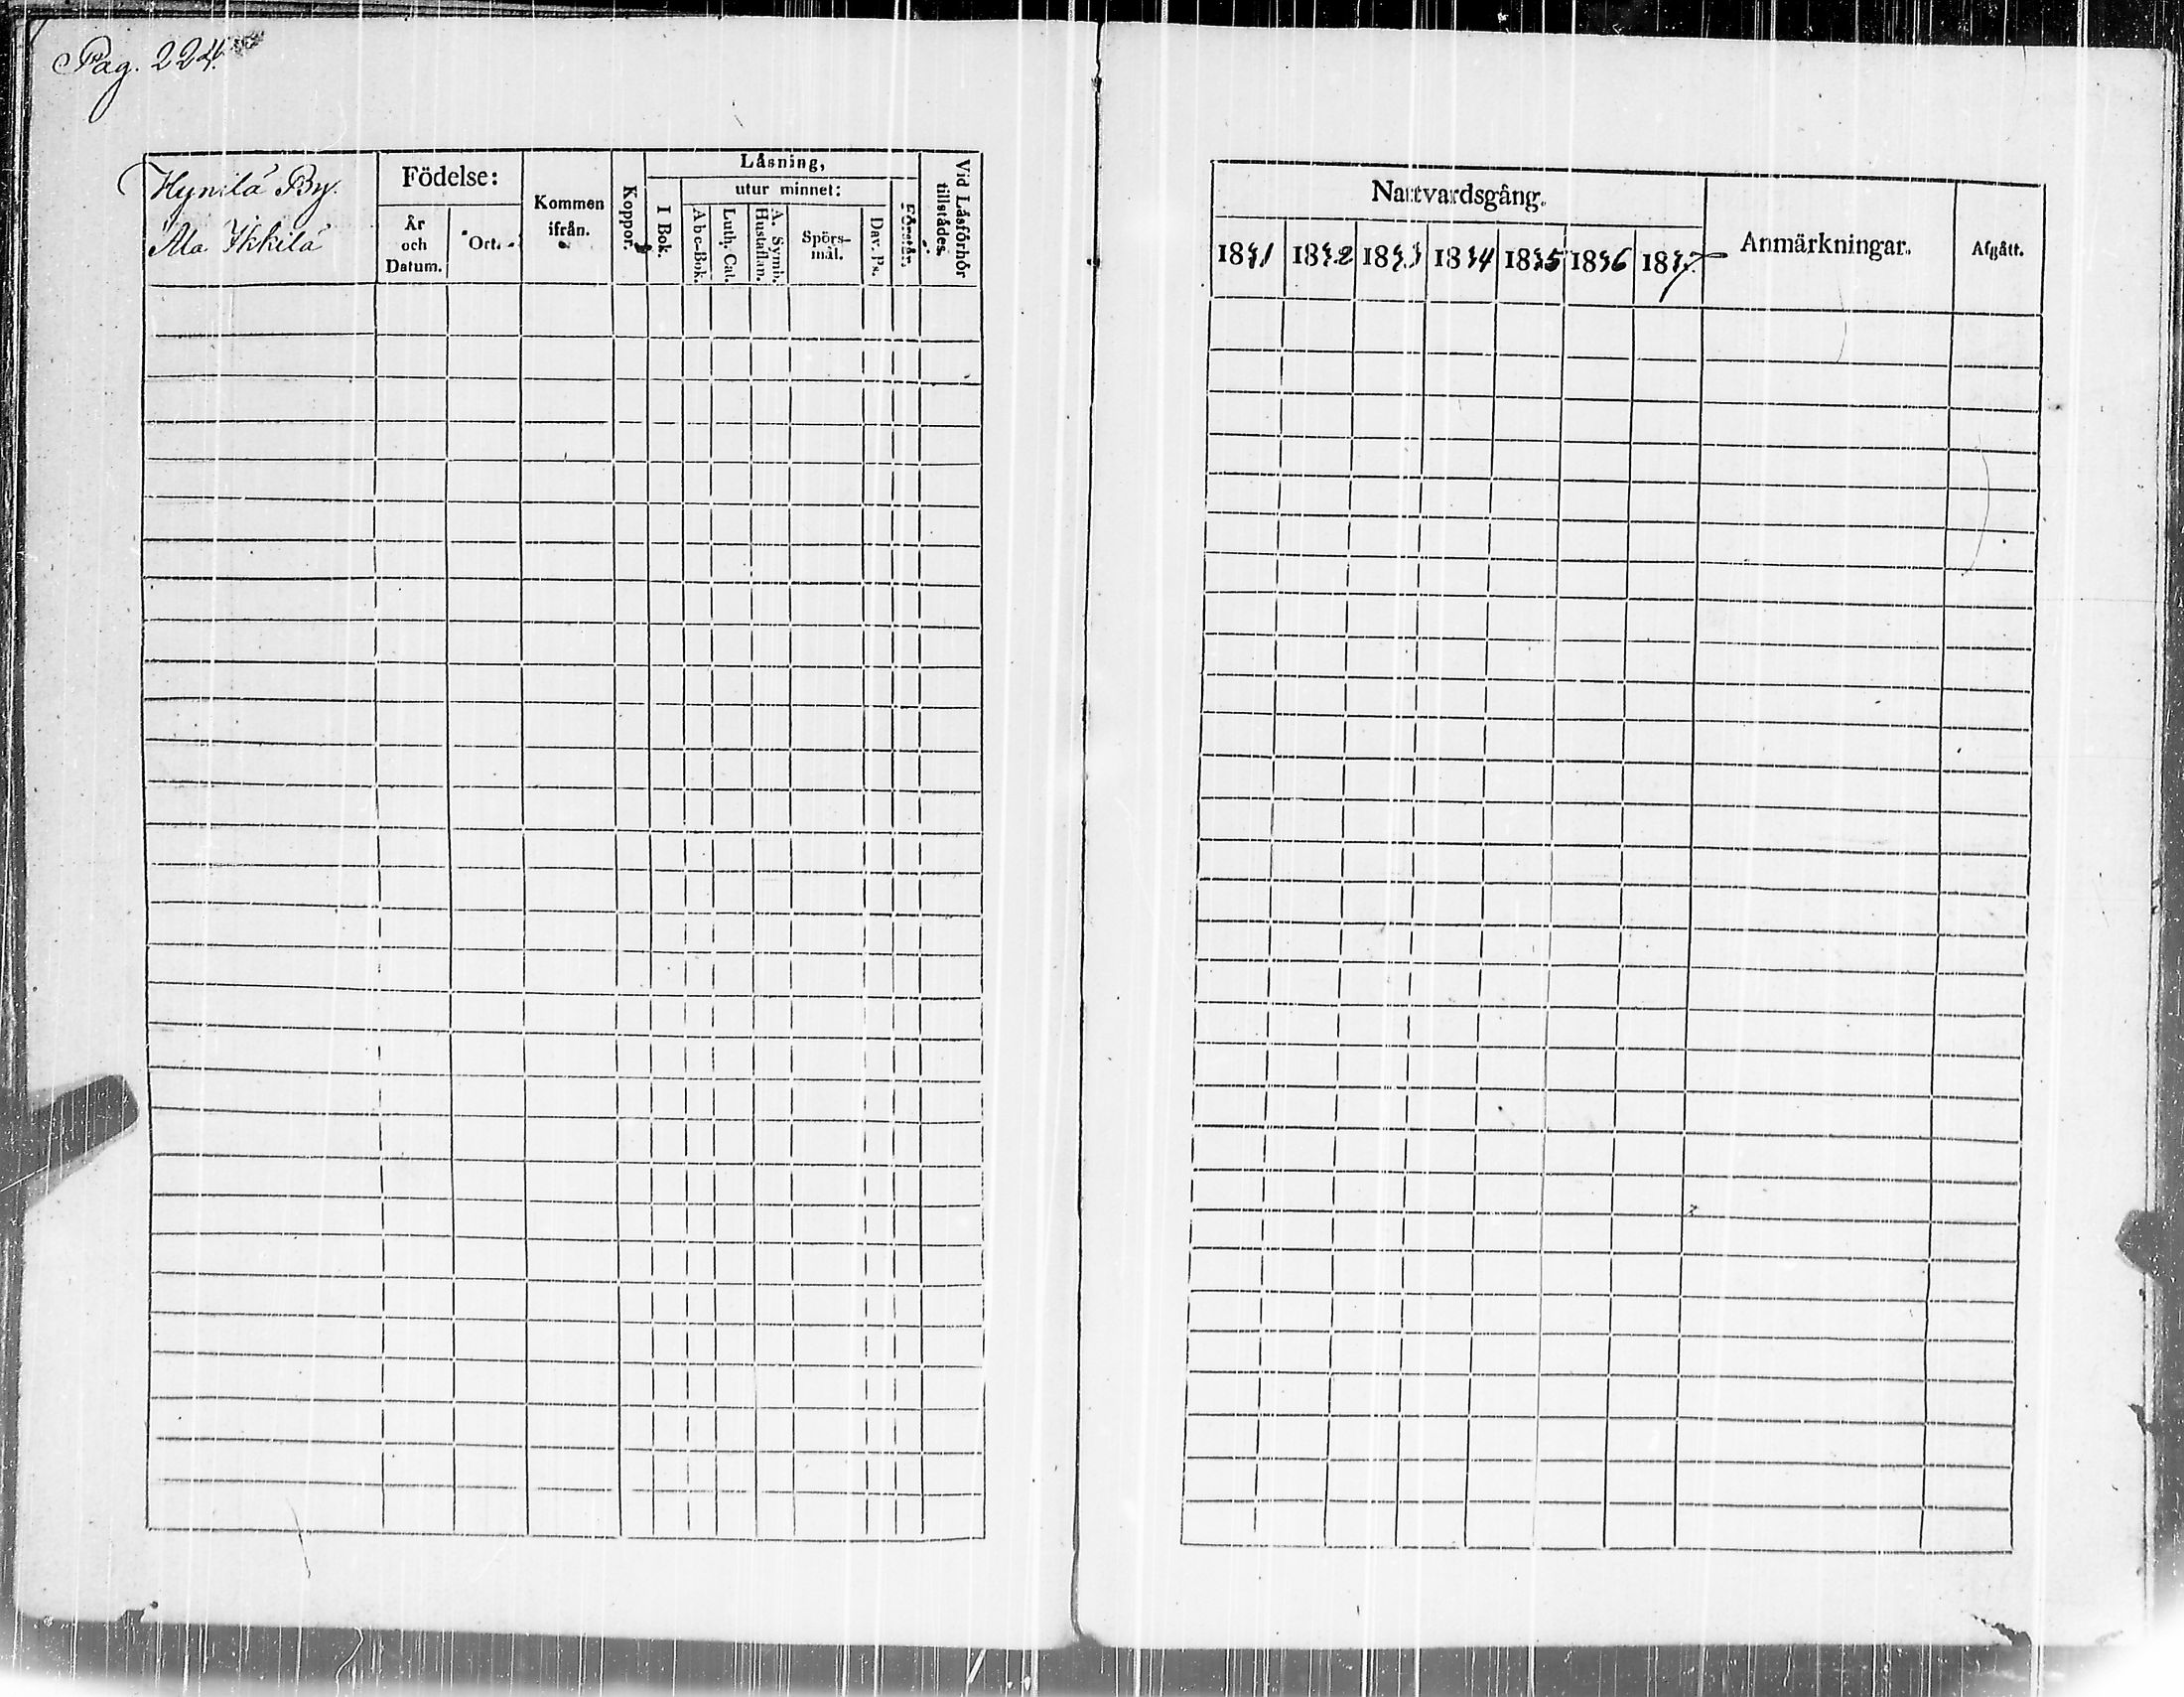 Pag. 224.
Hynilä By.
Ala Ikkilä
Födelse:
År
och
Datum.
Ort.
Kommen
ifrån.
Koppor.
Läsning,
utur minnet:
I Bok.
Abc-Bok.
Luth. Cat.
A. Symb.
Hustaflan.
Spörs-
mål.
Dav. Ps.
Vid Läsförhör
tillstädes.
Nattvardsgång.
1831 1832 1833 1834 1835 1836 1837
Anmärkningar.
Afgått.